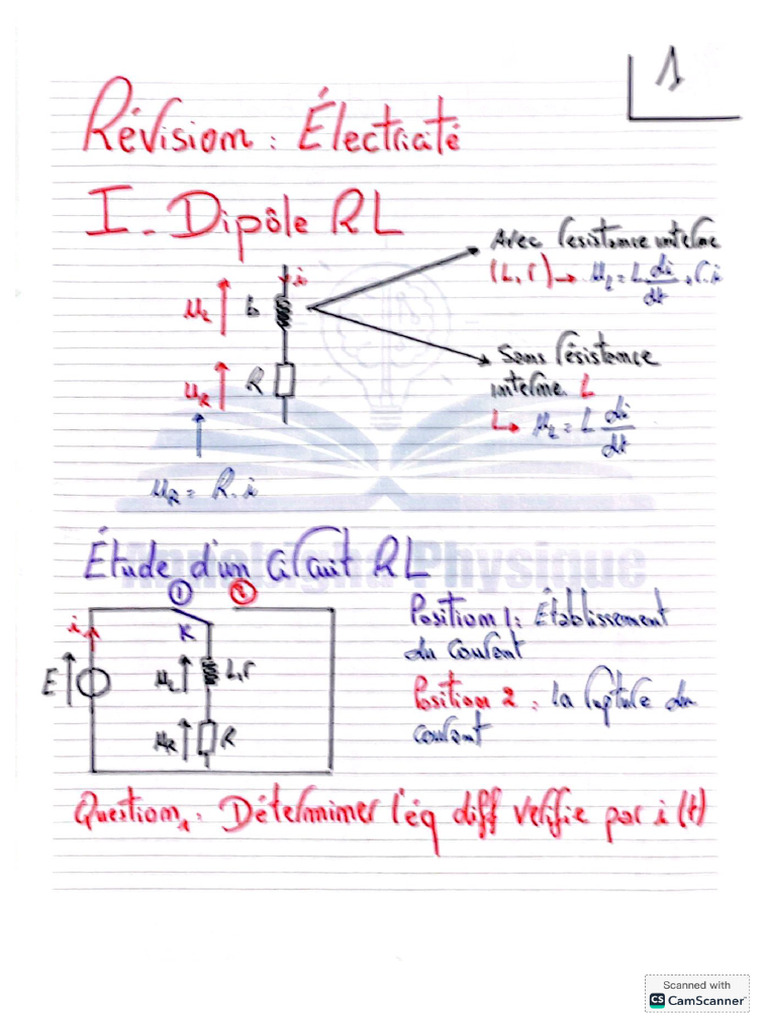 1
Révision : Électricité
I - Dipôle RL
Avec résistance interne
(L, r) → u_L = L di/dt + r.i
i
u_L
b
Sans résistance
interne L
↳ u_L = L di/dt
u_R
R
u_R = R.i
Étude d'un circuit RL
Physique
① ②
Position 1 : Établissement
du courant
i
K
E
u_L
L,r
Position 2 : la rupture du
courant
u_R
R
Question 1 : Déterminer l'éq diff vérifie par i(t)
Scanned with
CS CamScanner